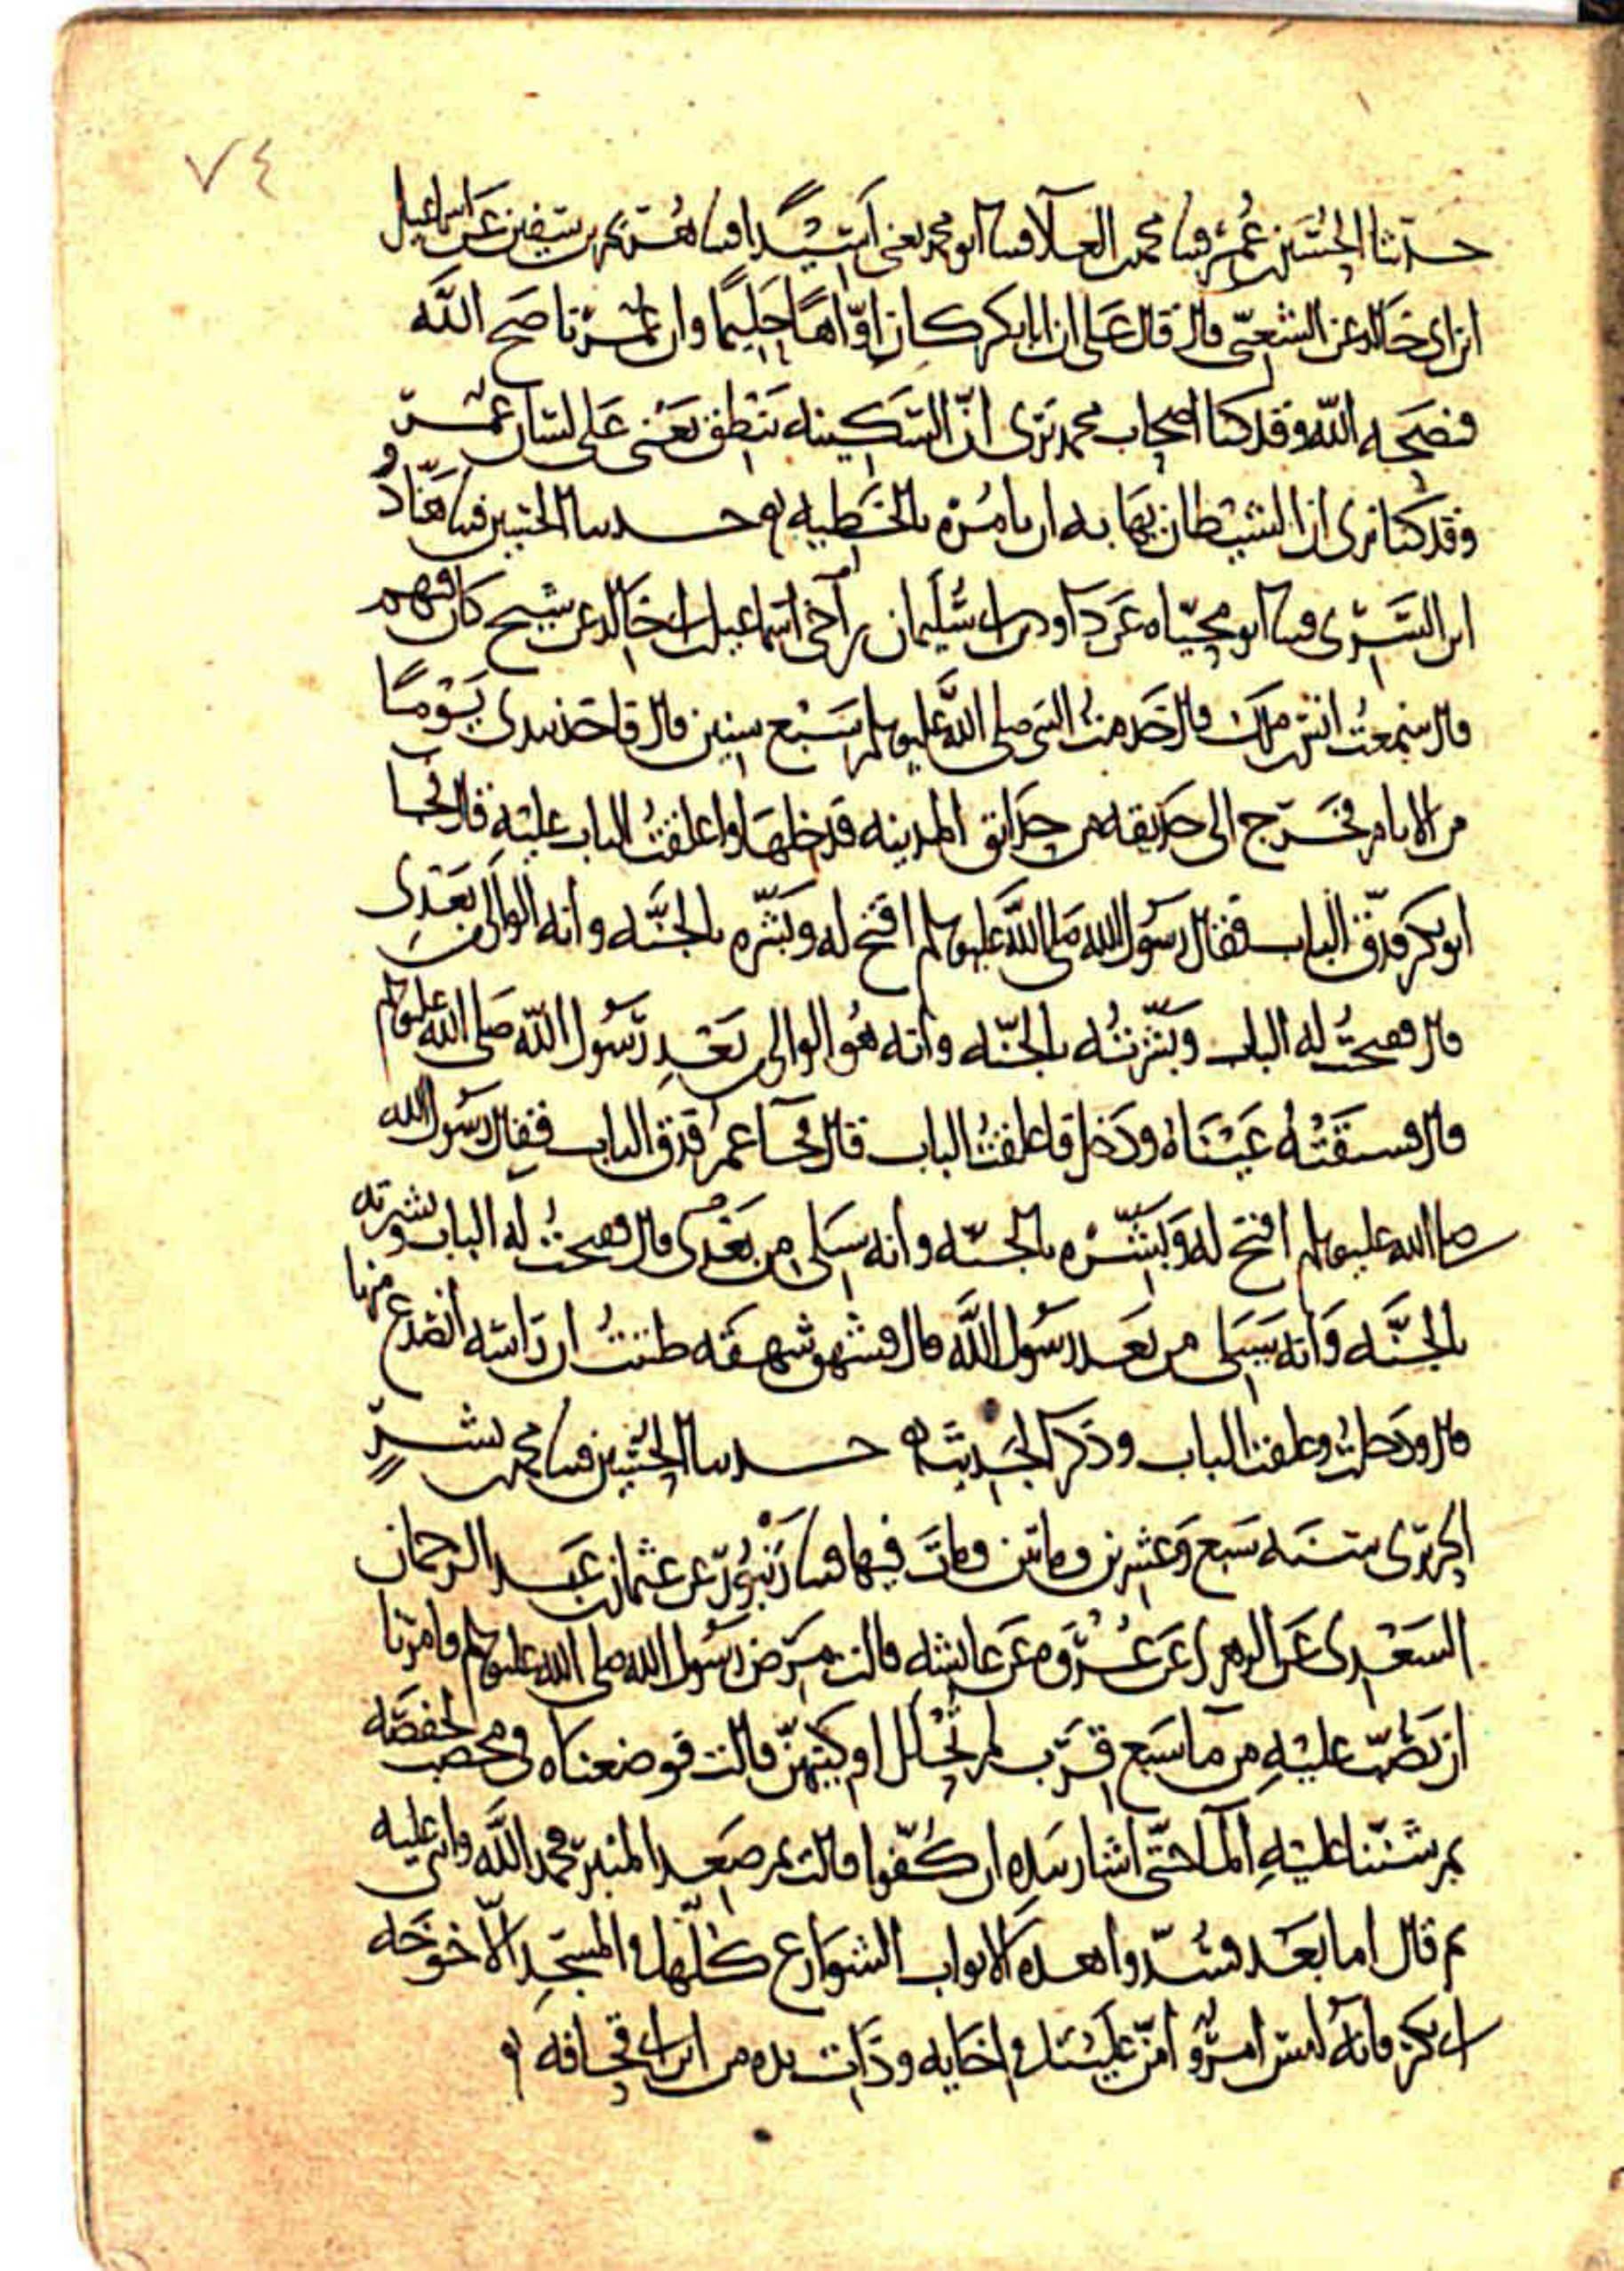 ٧٤
حدثنا الحسين بن عمر فثنا محمد بن العلا فثنا ابو محمد يعني اسيدا فثنا هريم بن سفين عن اسماعيل
ابن ابي خالد عن الشعبي قال قال علي ان ابا بكر كان اوّاهًا حَلِيمًا وان عمر ناصح الله
فنصحه الله وقد كنا اصحاب محمد نرى انّ السَّكينه تنطق يعني على لسان عمر
وقد كنا نرى ان الشيطان يهابه ان يامُره بالخطيه حدثنا الحسين فثنا هنّادُ
ابن السَّرِّى فثنا ابو محيّاه عن داود بن سُليمان بن اخي اسماعيل بن ابي خالد عن شيخ كان فيهم
قال سمعتُ انس بن ملك قال خَدمتُ النبي صلى الله عليه وسلم سَبع سنين قال فاخذ بيدى يَوْمًا
من الايام فخرج الى حديقه من حدائق المدينه فدخلها واغلقتُ الباب عليه قال فجا
ابو بكر فدقّ الباب فقال رسول الله صلى الله عليه وسلم افتح له وبَشّره بالجنَّه وانه الوالي من بَعدِى
قال ففتحتُ له الباب وبَشّرتُه بالجنّه وانه هُو الوالى بَعد رسُول الله صلى الله عليه وسلم
قال فسبقتهُ عَيْنَاهُ ودَخل فاغلقتُ الباب قال فجآ عمر فدق الباب فقال رسول الله
صلى الله عليه وسلم افتح له وبَشّره بالجنّه وانه سيَلى من بَعْدى قال ففتحتُ له الباب وبشرته
بالجنَّه وَانه سَيَلى من بَعد رسُول الله قال فشهق شهقَه ظننتُ ان رَاسَه انصدع منها
قال ودخلتُ وغلقت الباب وذكر الحديث حدثنا الحسين فثنا محمد بن بشرٍ
الحريرى سنه سَبع وَعشرين وماتين ومات فيها فثنا زَنبُور عن عثمان بن عَبد الرحمان
السَعْدِى عَن الزهرى عَن عُرْوَه عَن عايشه قالت مَرض رسول الله صلى الله عليه وسلم فامَرنا
ان نَصُبّ عليْهِ من ما سَبع قرَب لم تُحْلَل اوكيتهنّ قالت فوضعناه في مخضب لحفصَه
ثم شنّنا عليْهِ المآ حتّى اشار بيَدِه ان كُفّوا قالت ثم صَعِد المنبر فحمد الله واثنى عليه
ثم قال اما بعَد فسُدّوا هده الابواب الشوَارع كلّها في المسجدِ الّا خَوخَه
ابى بكر فانّه ليسَ امرُؤ امنّ عليَّ في اخايه وذَات يده من ابن ابى قحافه